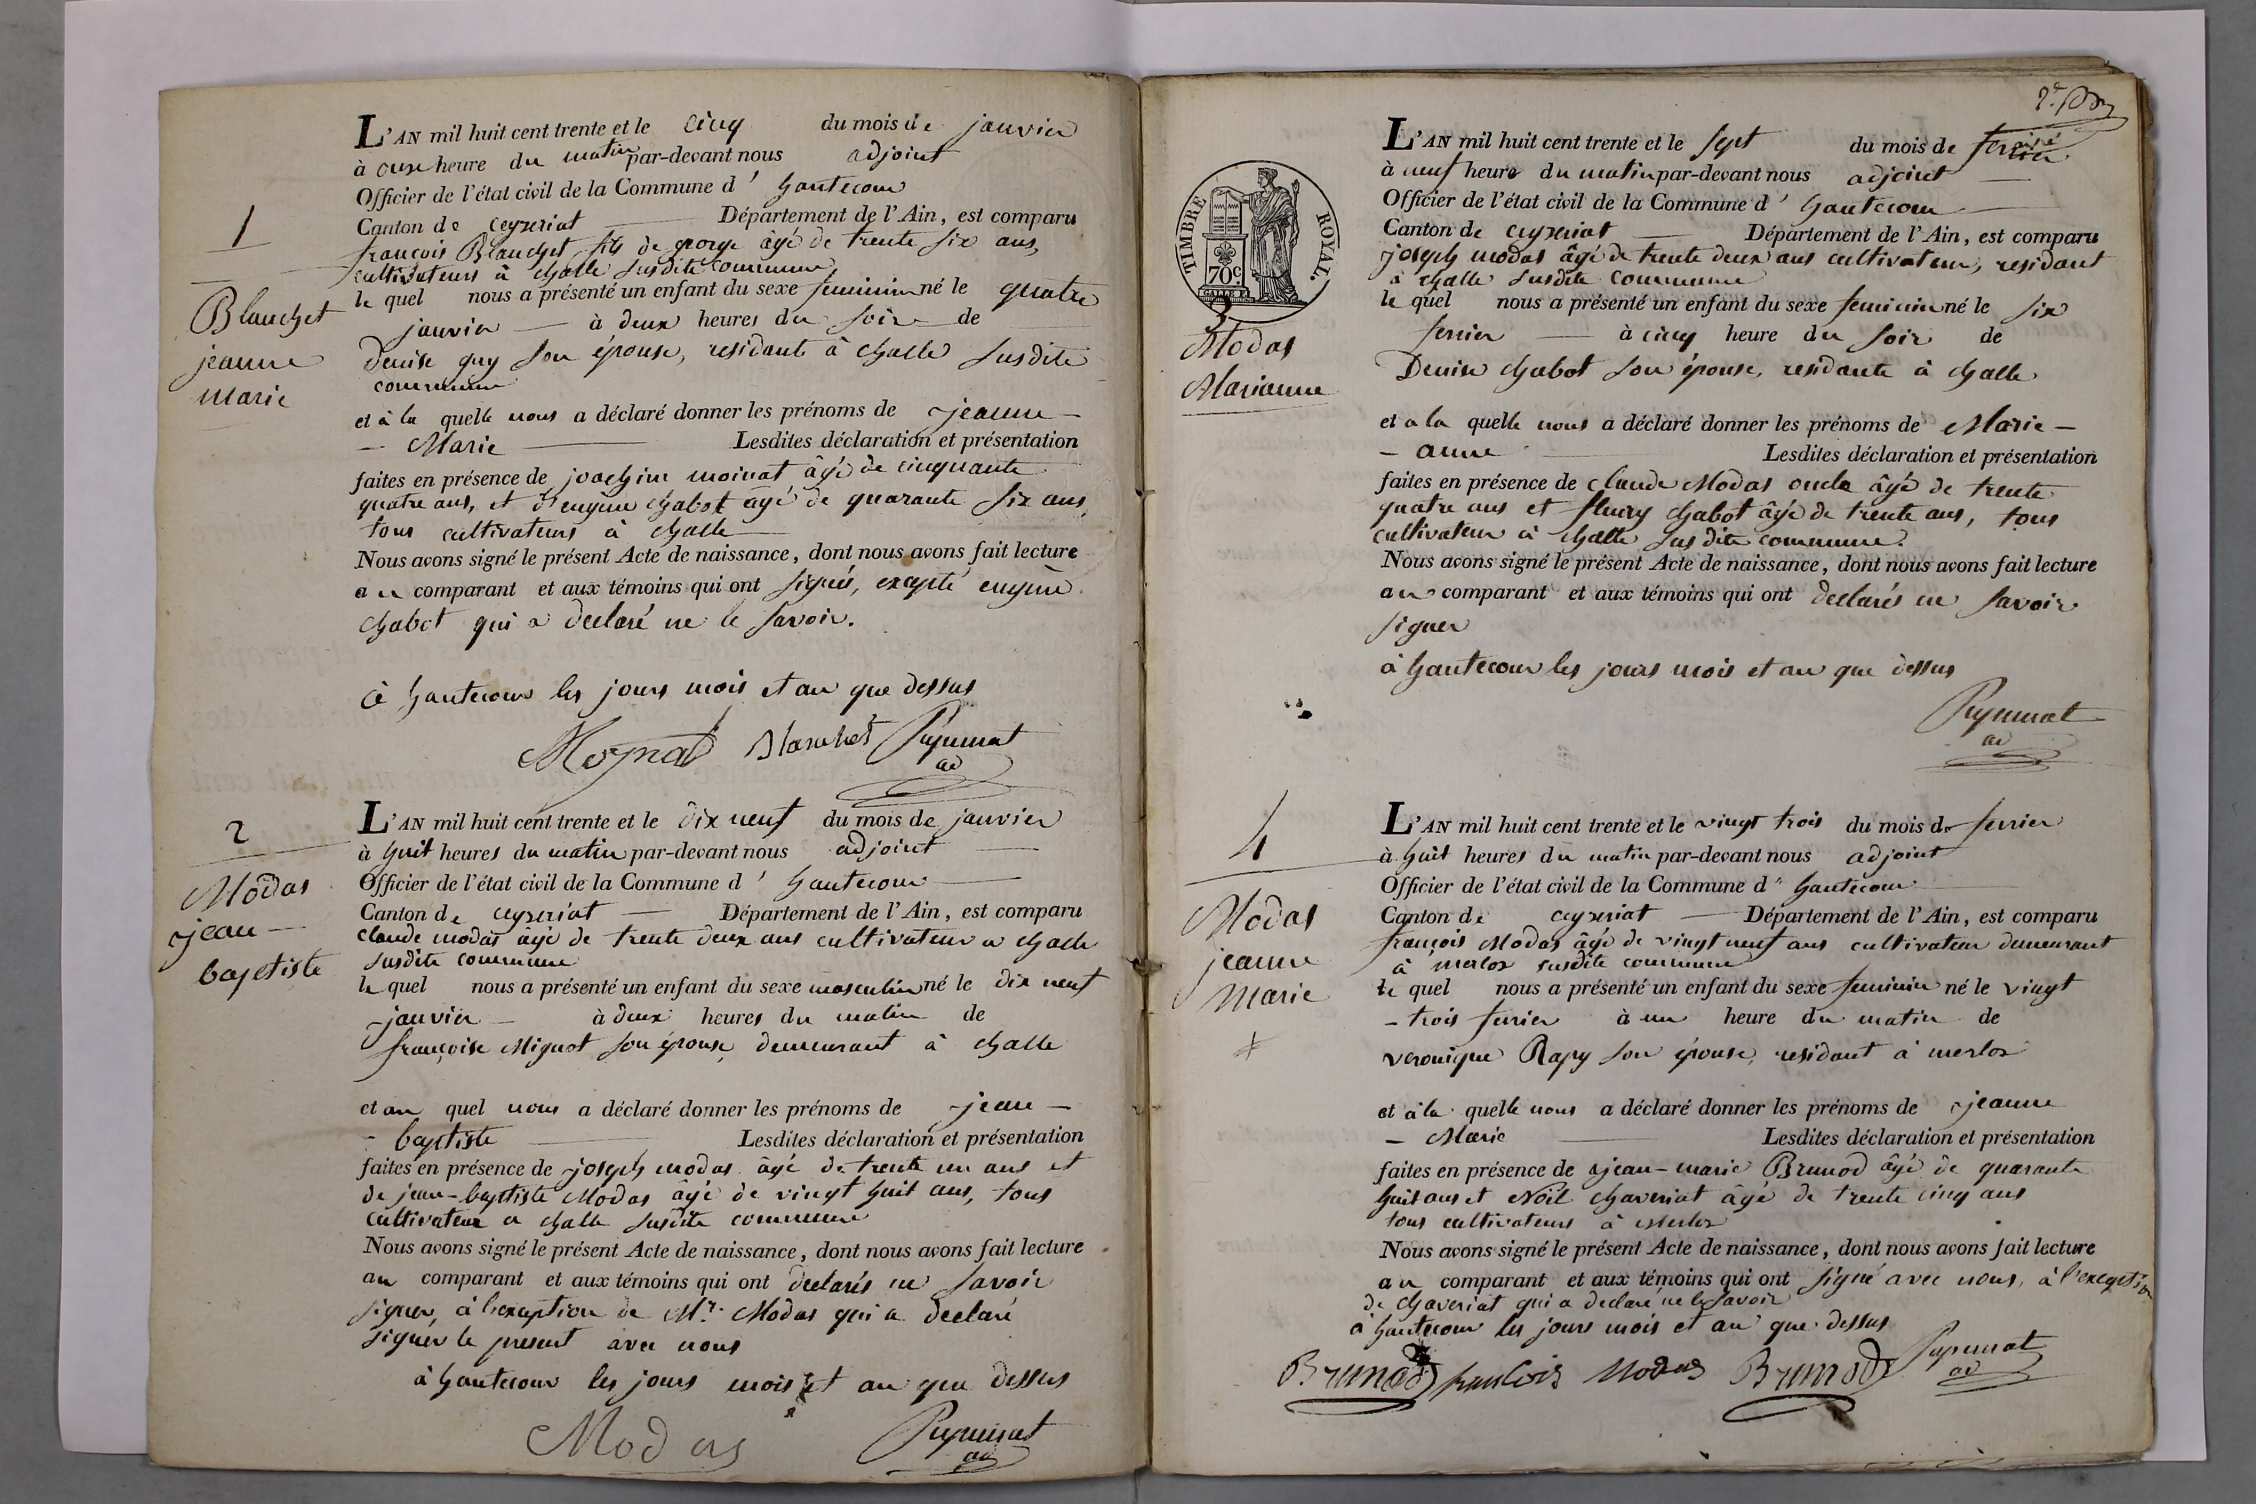 L'AN mil huit cent trente et le cinq du mois de janvier
à onze heure du matin par-devant nous adjoint
Officier de l'état civil de la Commune d' hautecour
Canton de ceyzeriat Département de l'Ain, est comparu
françois Blanchet fils de george âgé de trente six ans,
cultivateurs à challe susdite commune
le quel nous a présenté un enfant du sexe feminin né le quatre
janvier à deux heures du soir de
Denise guy son épouse, residante à challe susdite
commune
et à la quelle nous a déclaré donner les prénoms de jeanne
Marie Lesdites déclaration et présentation
faites en présence de joachim moinat âgé de cinquante
quatre ans, et d'eugene chabot âgé de quarante six ans,
tous cultivateurs à challe
Nous avons signé le présent Acte de naissance, dont nous avons fait lecture
au comparant et aux témoins qui ont signés, excepté eugène
chabot qui a declaré ne le savoir.
à hautecour les jours mois et an que dessus
Moynat Blanchet Puyminat
ad
1
Blanchet
jeanne
marie
L'AN mil huit cent trente et le dix neuf du mois de janvier
à huit heures du matin par-devant nous adjoint
Officier de l'état civil de la Commune d' hautecour
Canton de ceyzeriat Département de l'Ain, est comparu
claude modas âgé de trente deux ans cultivateur a challe
susdite commune
le quel nous a présenté un enfant du sexe masculin né le dix neuf
janvier à deux heures du matin de
françoise Mignot son épouse, demeurant à challe
et au quel nous a déclaré donner les prénoms de jean -
- baptiste Lesdites déclaration et présentation
faites en présence de joseph modas âgé de trente un ans et
de jean-baptiste Modas âgé de vingt huit ans, tous
cultivateur a challe susdite commune
Nous avons signé le présent Acte de naissance, dont nous avons fait lecture
au comparant et aux témoins qui ont declarés ne savoir
signer, à l'exception de Mr. Modas qui a declaré
signer le present avec nous
à hautecour les jours mois et an que dessus
Modas Puyminat
ad
2
Modas
jean
baptiste
TIMBRE ROYAL.
70c.
L'AN mil huit cent trente et le sept du mois de fevrier
à neuf heure du matin par-devant nous adjoint
Officier de l'état civil de la Commune d' hautecour
Canton de ceyzeriat Département de l'Ain, est comparu
joseph modas âgé de trente deux ans cultivateur, residant
à challe susdite commune
le quel nous a présenté un enfant du sexe feminin né le six
fevrier à cinq heure du soir de
Denise chabot son épouse, residante à challe
et a la quelle nous a déclaré donner les prénoms de Marie -
- anne Lesdites déclaration et présentation
faites en présence de claude Modas oncle âgé de trente
quatre ans et fleury chabot âgé de trente ans, tous
cultivateur à challe susdite commune.
Nous avons signé le présent Acte de naissance, dont nous avons fait lecture
au comparant et aux témoins qui ont declarés ne savoir
signer
à hautecour les jours mois et an que dessus
Puyminat
ad
3
Modas
Marianne
L'AN mil huit cent trente et le vingt trois du mois de fevrier
à huit heures du matin par-devant nous adjoint
Officier de l'état civil de la Commune d' hautecour
Canton de ceyzeriat Département de l'Ain, est comparu
françois Modas âgé de vingt neuf ans cultivateur demeurant
à merloz susdite commune
le quel nous a présenté un enfant du sexe feminin né le vingt
- trois fevrier à un heure du matin de
veronique Rapy son épouse, residant à merloz
et à la quelle nous a déclaré donner les prénoms de jeanne
- Marie Lesdites déclaration et présentation
faites en présence de jean-marie Brunod âgé de quarante
huit ans et Noël chaveriat âgé de trente cinq ans
tous cultivateurs à Merloz
Nous avons signé le présent Acte de naissance, dont nous avons fait lecture
au comparant et aux témoins qui ont signé avec nous, à l'exception
de chaveriat qui a declaré ne le savoir
à hautecour les jours mois et an que dessus
Brunod francois Modas Brunod Puyminat
ad
4
Modas
jeanne
Marie